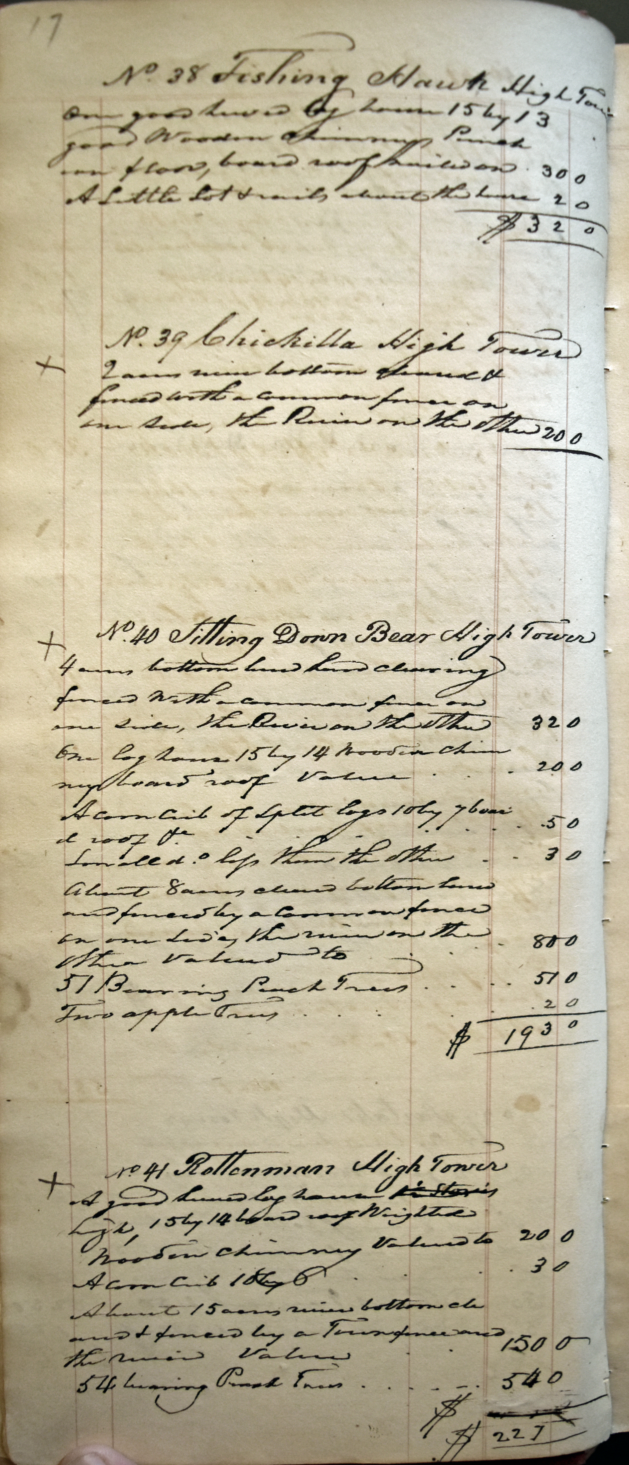 17
No. 38 Fishing Hawk High Tower
One good hewed log house 15 by 13
good Wooden Chimney Punch
eon floor, board roof nailed on 300
A Little Lot & rails about the house 20
$ 320
No. 39 Chickilla High Tower
2 acres river bottom cleared &
fenced with a common fence on
one side, the River on the other 200
No. 40 Sitting Down Bear High Tower
4 acres bottom land clearing
fenced With a common fence on
one side, the River on the other 320
One log house 15 by 14 Wooden Chim
ney board roof Value . . . 200
A corn Crib of Split logs 10 by 7 boar
d roof &c . . . . 50
Small do. less than the other . . 30
About 8 acres cleared bottom land
and fenced by a Common fence
on one side, the river on the
other Valued to . . 800
51 Bearing Peach Trees . . . . 510
Two apple Trees . . . . 20
$ 1930
No 41 Rottenman High Tower
A good hewed log house
high, 15 by 14 board roof Weighted
Wooden Chimney Valued to 200
A corn Crib 10 by 6 . . . 30
About 15 acres river bottom cle
ared & fenced by a Town fence and
the river Value . . 1500
54 bearing Peach Trees . . . . 540
$
$ 227